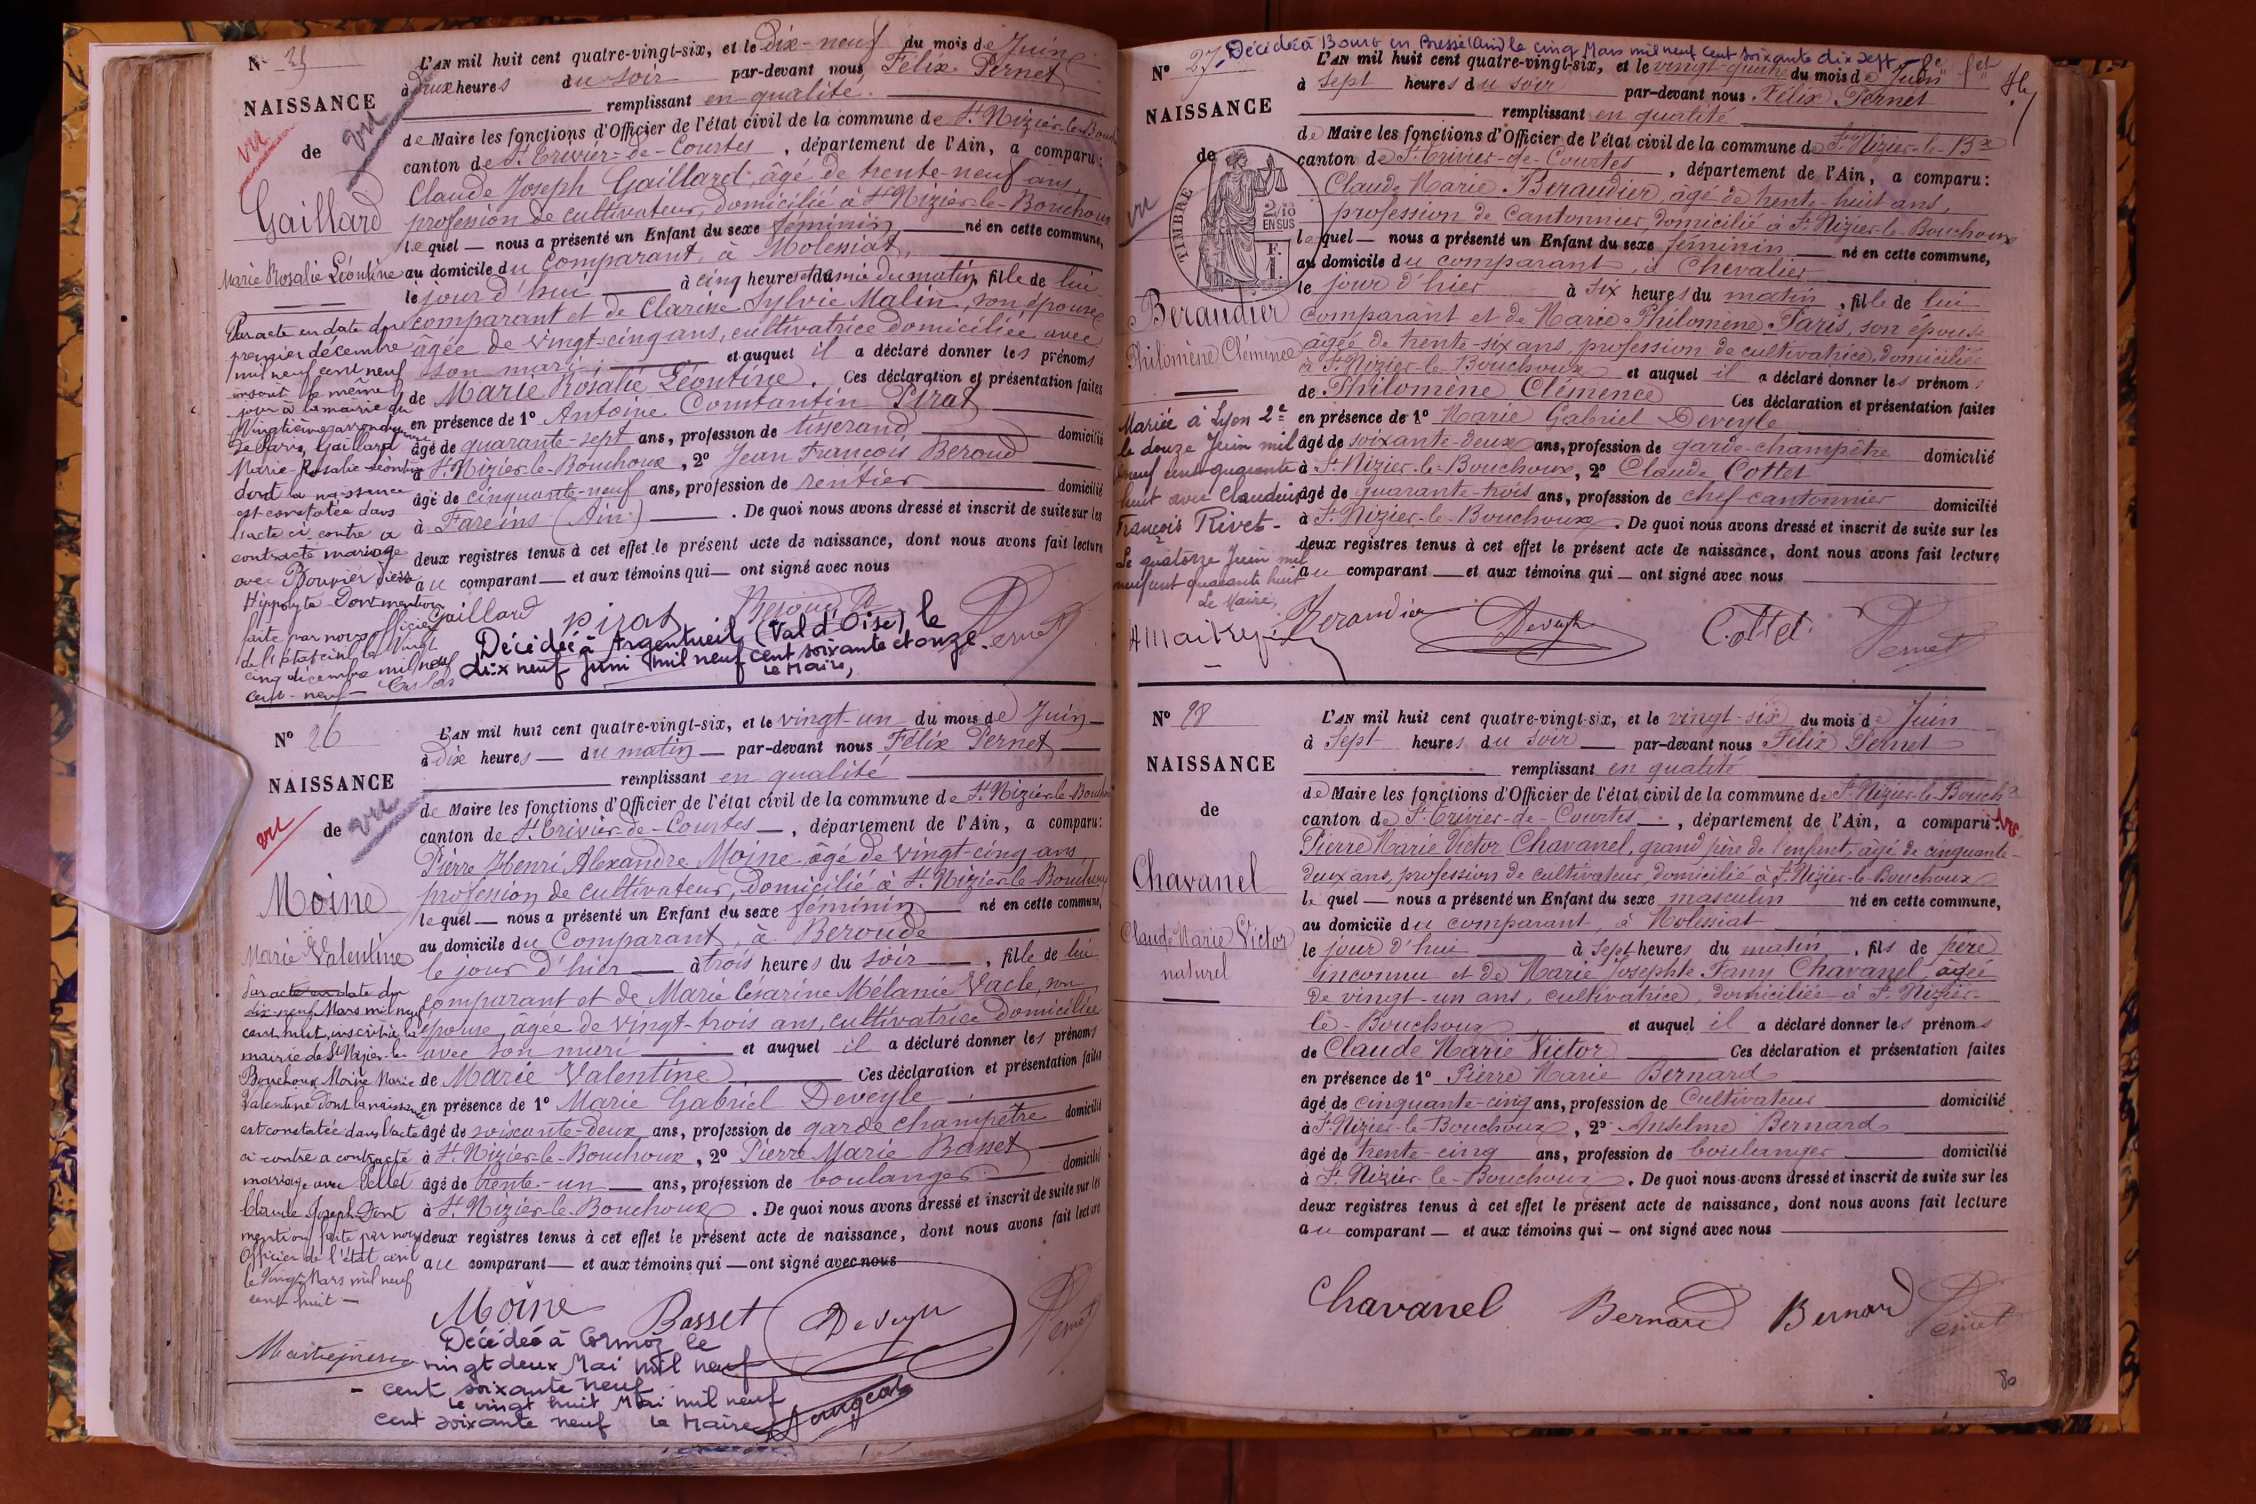 N° 25
NAISSANCE
vu
de
vu
Gaillard
Marie Rosalie Léontine
L'AN mil huit cent quatre-vingt-six, et le Dix-neuf du mois de Juin
à deux heures du soir par-devant nous Félix Pernet
remplissant en qualité
de Maire les fonctions d'Officier de l'état civil de la commune de St Nizier-le-Bouch
canton de St Trivier-de-Courtes, département de l'Ain, a comparu:
Claude Joseph Gaillard, âgé de trente-neuf ans,
profession de cultivateur, domicilié à St Nizier-le-Bouchoux
lequel — nous a présenté un Enfant du sexe féminin né en cette commune,
au domicile du Comparant, à Molessiat,
le jour d'hui à cinq heures et demie du matin, fille de lui
comparant et de Clarisse Sylvie Malin, son épouse
âgée de vingt-cinq ans, cultivatrice domiciliée avec
son mari, et auquel il a déclaré donner les prénoms
de Marie Rosalie Léontine. Ces déclaration et présentation faites
en présence de 1° Antoine Constantin Pirat
âgé de quarante-sept ans, profession de tisserand domicilié
à St Nizier-le-Bouchoux, 2° Jean François Beroud
âgé de cinquante-neuf ans, profession de rentier domicilié
à Fareins (Ain). De quoi nous avons dressé et inscrit de suite sur les
deux registres tenus à cet effet le présent acte de naissance, dont nous avons fait lecture
au comparant — et aux témoins qui — ont signé avec nous
Gaillard Pirat Beroud Pernet
Par acte en date du
premier décembre
mil neuf cent neuf
inscrit le même
jour à la mairie du
Vingtième arrondissement
de Paris, Gaillard
Marie-Rosalie Léontine
dont la naissance
est constatée dans
l'acte ci contre a
contracté mariage
avec Bouvier
Hippolyte Dont mention
faite par nous officier
de l'état civil le Vingt
cinq décembre mil neuf
cent-neuf —
Décédée à Argenteuil (Val d'Oise), le
dix neuf Juin mil neuf cent soixante et onze.
Le Maire,
N° 26
NAISSANCE
vu
de
vu
Moine
Marie Valentine
L'AN mil huit cent quatre-vingt-six, et le vingt-un du mois de Juin
à Dix heures — du matin — par-devant nous Félix Pernet
remplissant en qualité
de Maire les fonctions d'Officier de l'état civil de la commune de St Nizier-le-Bouchoux
canton de St Trivier-de-Courtes —, département de l'Ain, a comparu:
Pierre Henri Alexandre Moine âgé de vingt-cinq ans
profession de cultivateur, domicilié à St Nizier-le-Bouchoux
lequel — nous a présenté un Enfant du sexe féminin — né en cette commune,
au domicile du Comparant, à Beroude
le jour d'hier — à trois heures du soir —, fille de lui
comparant et de Marie Césarine Mélanie Vacle, son
épouse, âgée de vingt-trois ans, cultivatrice domiciliée
avec son mari et auquel il a déclaré donner les prénoms
de Marie Valentine Ces déclaration et présentation faites
en présence de 1° Marie Gabriel Deveyle
âgé de soixante-deux ans, profession de garde champêtre domicilié
à St Nizier-le-Bouchoux, 2° Pierre Marie Basset
âgé de trente-un — ans, profession de boulanger domicilié
à St Nizier-le-Bouchoux. De quoi nous avons dressé et inscrit de suite sur les
deux registres tenus à cet effet le présent acte de naissance, dont nous avons fait lecture
au comparant — et aux témoins qui — ont signé avec nous
Moine Basset Deveyle Pernet
Par acte en date du
dix-neuf Mars mil neuf
cent huit, inscrit à la
mairie de St Nizier-le-
Bouchoux Moine Marie
Valentine dont la naissance
est constatée dans l'acte
ci-contre a contracté
mariage avec
Claude Joseph Dont
mention faite par nous
Officier de l'état civil
le Vingt Mars mil neuf
cent huit —
Décédée à Cormoz le
vingt deux Mai mil neuf
cent soixante neuf
Le vingt huit Mai mil neuf
cent soixante neuf Le Maire
Décédée à Bourg en Bresse (Ain) le cinq Mars mil neuf cent soixante dix sept
N° 27
NAISSANCE
vu
de
TIMBRE
2/10
EN SUS
F.
1.
Beraudier
Philomène Clémence
L'AN mil huit cent quatre-vingt-six, et le vingt-quatre du mois de Juin
à Sept heures du soir par-devant nous Félix Pernet
remplissant en qualité
de Maire les fonctions d'Officier de l'état civil de la commune de St Nizier-le-Bx
canton de St Trivier-de-Courtes, département de l'Ain, a comparu:
Claude Marie Beraudier, âgé de trente-huit ans,
profession de Cantonnier, domicilié à St Nizier-le-Bouchoux
lequel — nous a présenté un Enfant du sexe féminin né en cette commune,
au domicile du comparant, à Chevalier
le jour d'hier à six heures du matin, fille de lui
comparant et de Marie Philomène Paris, son épouse
âgée de trente-six ans, profession de cultivatrice, domiciliée
à St Nizier-le-Bouchoux et auquel il a déclaré donner les prénoms
de Philomène Clémence Ces déclaration et présentation faites
en présence de 1° Marie Gabriel Deveyle
âgé de soixante-deux ans, profession de garde-champêtre domicilié
à St Nizier-le-Bouchoux, 2° Claude Cottet
âgé de quarante-trois ans, profession de chef-cantonnier domicilié
à St Nizier-le-Bouchoux. De quoi nous avons dressé et inscrit de suite sur les
deux registres tenus à cet effet le présent acte de naissance, dont nous avons fait lecture
au comparant — et aux témoins qui — ont signé avec nous
Beraudier Deveyle Cottet Pernet
Mariée à Lyon 2e
le douze Juin mil
neuf cent quarante
huit avec Claudius
François Rivet -
Le quatorze Juin mil
neuf cent quarante huit
Le Maire,
N° 28
NAISSANCE
de
Chavanel
Claude Marie Victor
naturel
L'AN mil huit cent quatre-vingt-six, et le vingt-six du mois de Juin
à Sept heures du soir — par-devant nous Félix Pernet
remplissant en qualité
de Maire les fonctions d'Officier de l'état civil de la commune de St Nizier-le-Bouchx
canton de St Trivier-de-Courtes —, département de l'Ain, a comparu:
Pierre Marie Victor Chavanel, grand père de l'enfant, âgé de cinquante-
deux ans, profession de cultivateur, domicilié à St Nizier-le-Bouchoux
lequel — nous a présenté un Enfant du sexe masculin né en cette commune,
au domicile du comparant, à Molessiat
le jour d'hui à Sept heures du matin, fils de père
inconnu et de Marie Josephte Fany Chavanel, âgée
de vingt-un ans, cultivatrice, domiciliée à St Nizier-
le-Bouchoux et auquel il a déclaré donner les prénoms
de Claude Marie Victor Ces déclaration et présentation faites
en présence de 1° Pierre Marie Bernard
âgé de cinquante-cinq ans, profession de Cultivateur domicilié
à St Nizier-le-Bouchoux, 2° Anselme Bernard
âgé de trente-cinq ans, profession de boulanger domicilié
à St Nizier-le-Bouchoux. De quoi nous avons dressé et inscrit de suite sur les
deux registres tenus à cet effet le présent acte de naissance, dont nous avons fait lecture
au comparant — et aux témoins qui — ont signé avec nous
Chavanel Bernard Bernard Pernet
80